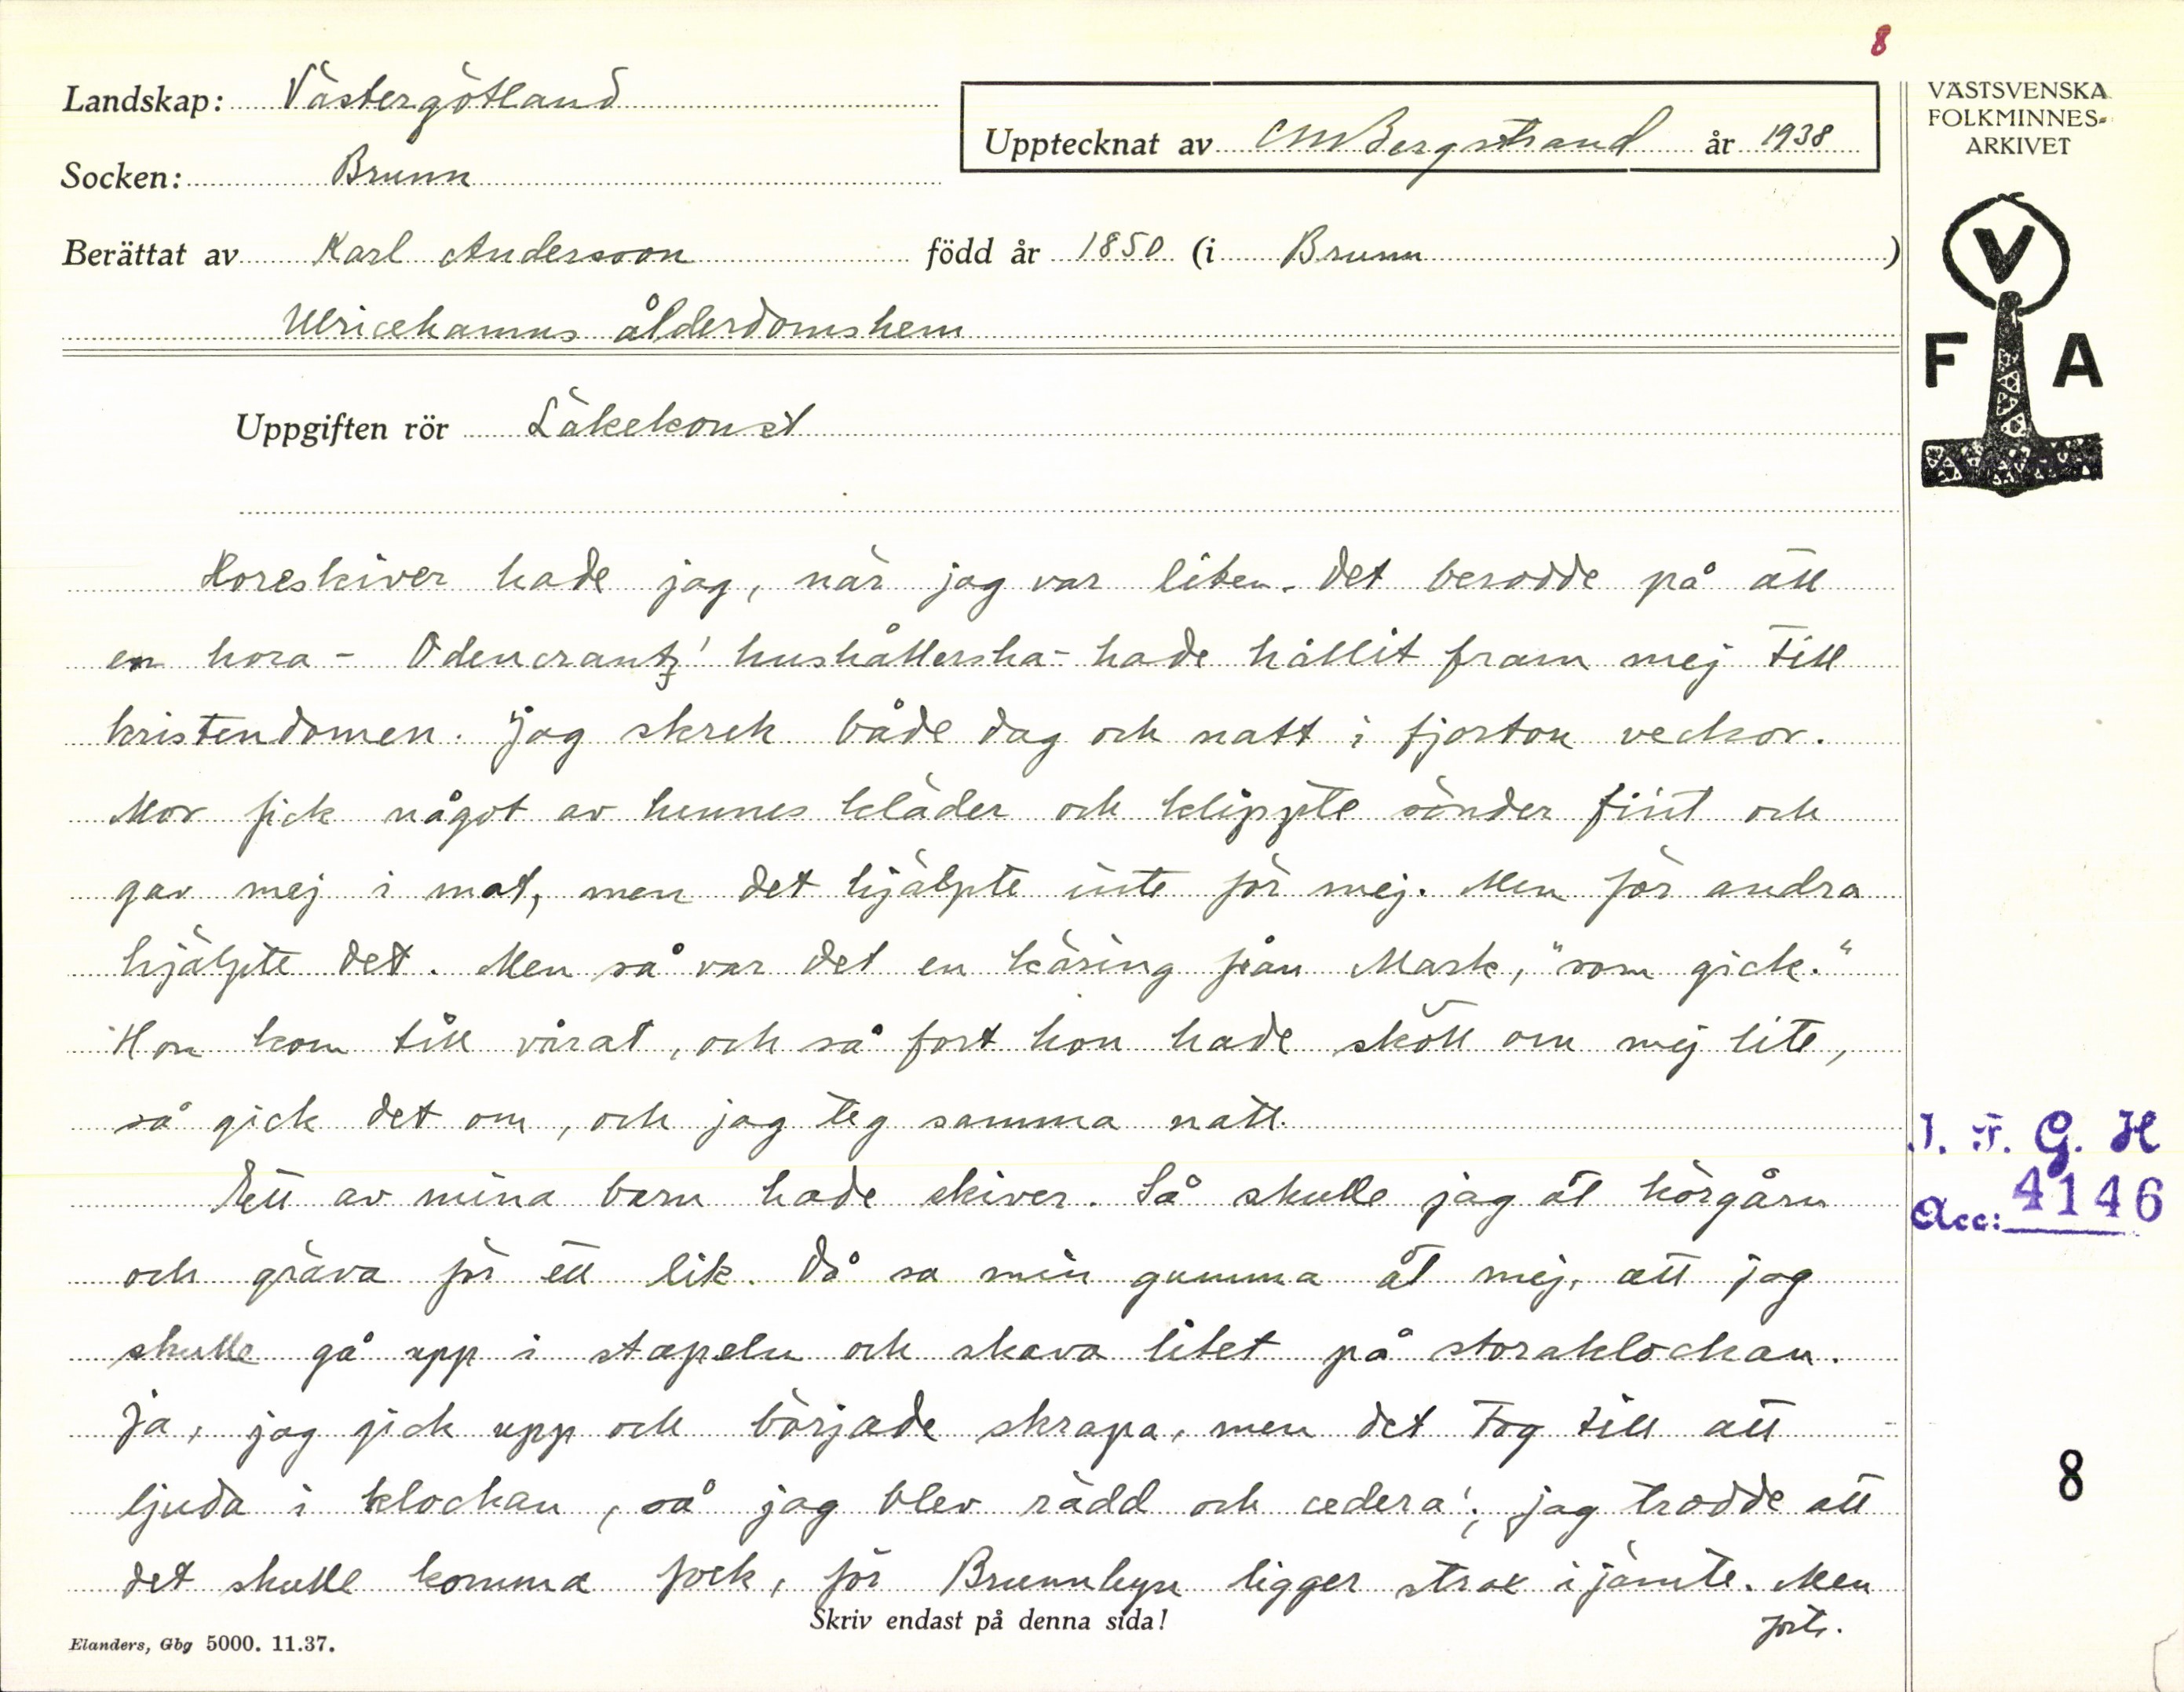 8
Landskap: Västergötland
Upptecknat av CMBergstrand år 1938
VÄSTSVENSKA
FOLKMINNES-
ARKIVET
Socken: Brunn
Berättat av Karl Andersson född år 1850 (i Brunn)
Ulricehamns ålderdomshem
V
F A
Uppgiften rör Läkekonst
Horeskiver hade jag, när jag var liten. Det berodde på att
en hora - Odencrantz' hushållerska - hade hållit fram mej till
kristendomen. Jag skrek både dag och natt i fjorton veckor.
Mor fick något av hennes kläder och klippte sönder fint och
gav mej i mat, men det hjälpte inte för mej. Men för andra
hjälpte det. Men så var det en käring från Mark, "som gick."
Hon kom till vårat, och så fort hon hade skött om mej lite,
så gick det om, och jag teg samma natt.
Ett av mina barn hade skiver. Så skulle jag åt körgårn
och gräva för ett lik. Då sa min gumma åt mej, att jag
skulle gå upp i stapeln och skava litet på storaklockan.
Ja, jag gick upp och började skrapa, men det tog till att
ljuda i klockan, så jag blev rädd och cedera'; jag trodde att
det skulle komma fock, för Brunnbyn ligger strax ijämte. Men
forts.
J. F. G. H
Acc: 4146
8
Skriv endast på denna sida!
Elanders, Gbg 5000. 11.37.